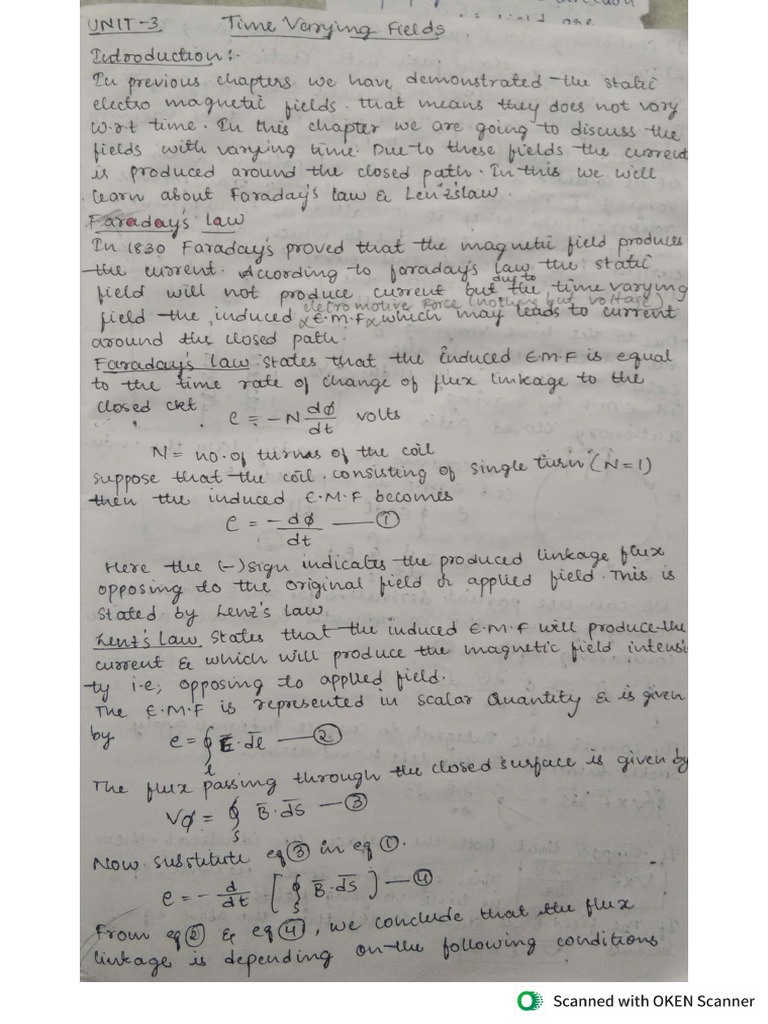 UNIT-3 Time Varying Fields
Introduction:-
In previous chapters we have demonstrated the static
electro magnetic fields. that means they does not vary
w.r.t time. In this chapter we are going to discuss the
fields with varying time. Due to these fields the current
is produced around the closed path. In this we will
learn about Faraday's law & Lenz's law.
Faraday's law
In 1830 Faraday's proved that the magnetic field produces
the current. According to faraday's law the static
field will not produce current but due to the time varying
eletro motive Force (nothing but voltage)
field the induced E.M.F which may leads to current
around the closed path.
Faraday's law states that the induced E.M.F is equal
to the time rate of change of flux linkage to the
closed ckt
e = -N dφ/dt volts
N = no. of turns of the coil
suppose that the coil consisting of single turn (N=1)
then the induced E.M.F becomes
e = -dφ/dt — ①
Here the (-) sign indicates the produced linkage flux
opposing to the original field or applied field. This is
stated by Lenz's Law.
Lenz's Law states that the induced E.M.F will produce the
current & which will produce the magnetic field intensi
ty i.e; opposing to applied field.
The E.M.F is represented in scalar Quantity & is given
by e = ∮l E̅.d̅l̅ — ②
The flux passing through the closed surface is given by
Vφ = ∮s B̅.d̅s̅ — ③
Now substitute eq ③ in eq ①.
e = - d/dt [∮s B̅.d̅s̅] — ④
From eq ② & eq ④, we conclude that the flux
linkage is depending on the following conditions
Scanned with OKEN Scanner